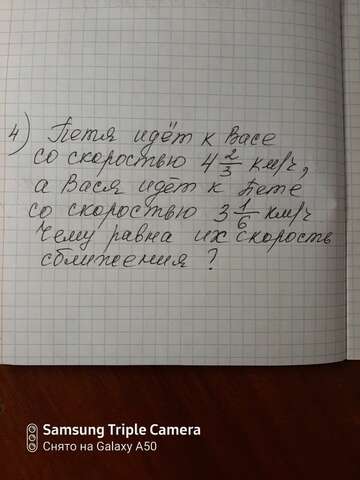 4) Петя идёт к Васе
со скоростью 4 2/3 км/ч,
а Вася идёт к Пете
со скоростью 3 1/6 км/ч
Чему равна их скорость
сближения ?
Samsung Triple Camera
Снято на Galaxy A50